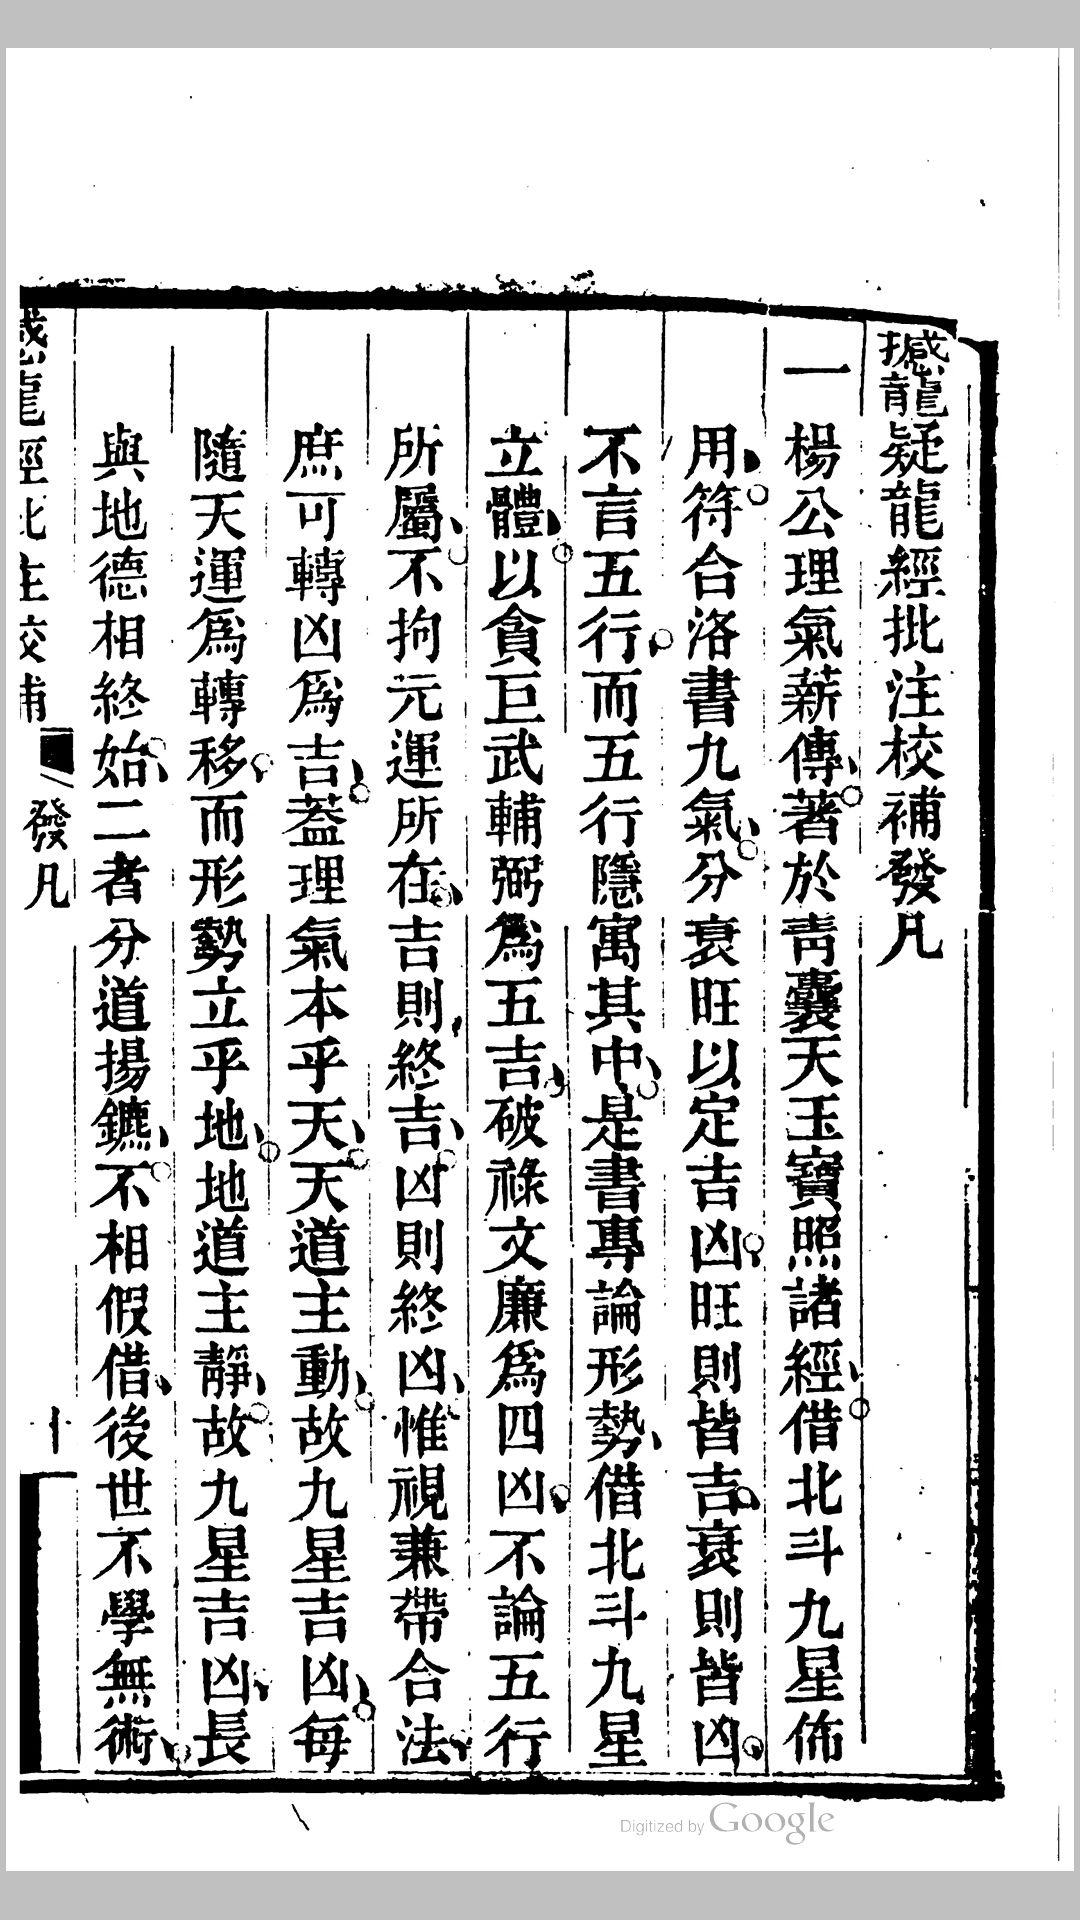 撼龍疑龍經批注校補發凡
一楊公理氣薪傳著於靑囊天玉寶照諸經借北斗九星佈
用符合洛書九氣分衰旺以定吉凶旺則皆吉衰則皆凶
不言五行而五行隱寓其中是書專論形勢借北斗九星
立體以貪巨武輔弼爲五吉破祿文廉爲四凶不論五行
所屬不拘元運所在吉則終吉凶則終凶惟視兼帶合法
庶可轉凶爲吉葢理氣本乎天天道主動故九星吉凶每
隨天運爲轉移而形勢立乎地地道主靜故九星吉凶長
與地德相終始二者分道揚鑣不相假借後世不學無術
撼龍經批注校補
發凡
十
Digitized by Google